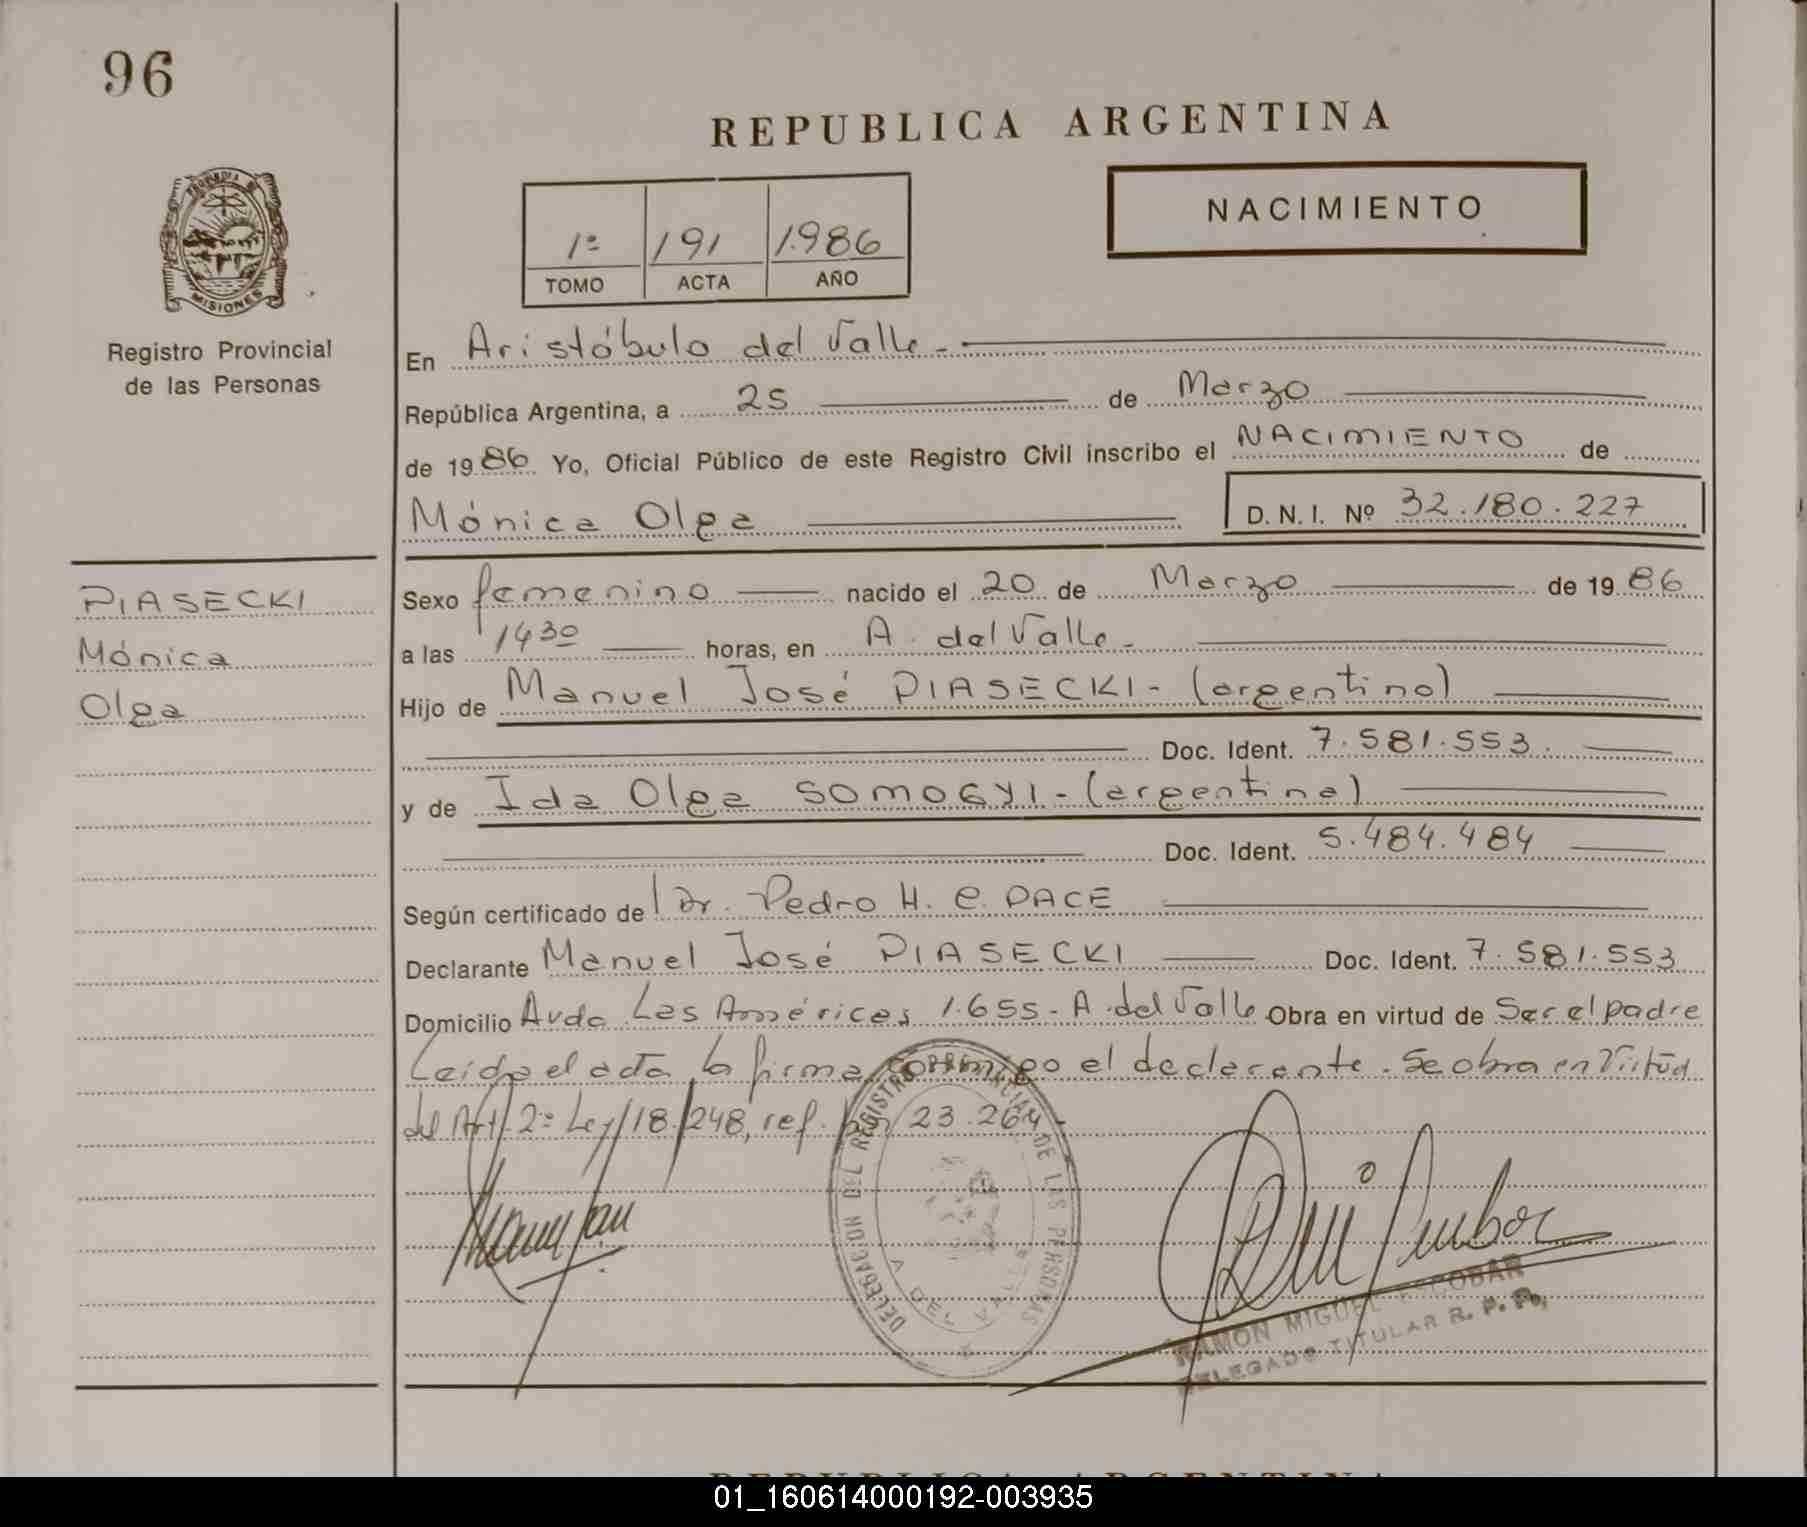 96
REPUBLICA ARGENTINA
NACIMIENTO
1º 191 1.986
TOMO ACTA AÑO
PROVINCIA DE
MISIONES
Registro Provincial
de las Personas
En Aristóbulo del Valle -
República Argentina, a 25 de Marzo
de 1986 Yo, Oficial Público de este Registro Civil inscribo el NACIMIENTO de
Mónica Olga D. N. I. Nº 32.180.227
PIASECKI
Mónica
Olga
Sexo femenino nacido el 20 de Marzo de 1986
a las 1430 horas, en A. del Valle -
Hijo de Manuel José PIASECKI - (argentino)
Doc. Ident. 7.581.553.
y de Ida Olga SOMOGYI - (argentina)
Doc. Ident. 5.484.484
Según certificado de Dr. Pedro H. C. PACE
Declarante Manuel José PIASECKI Doc. Ident. 7.581.553
Domicilio Avda Las Américas 1.655 - A. del Valle Obra en virtud de Ser el padre
Leída el acta la firma conmigo el declarante. Se obra en Virtud
del Art. 2º Ley 18.248, ref. por 23.264 -
DELEGACION DEL REGISTRO PROVINCIAL DE LAS PERSONAS
A DEL VALLE
RAMON MIGUEL ESCOBAR
DELEGADO TITULAR R. P. P.
REPUBLICA ARGENTINA
01_160614000192-003935